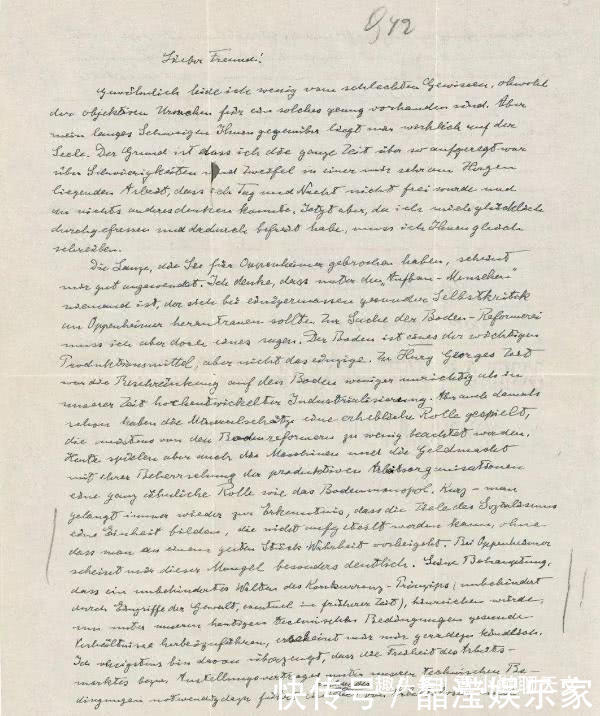 942
Lieber Freund!
Gewöhnlich leide ich wenig vom schlechten Gewissen, obwohl
der objektiven Ursachen für ein solches genug vorhanden sind. Aber
mein langes Schweigen Ihnen gegenüber liegt mir wirklich auf der
Seele. Der Grund ist dass ich die ganze Zeit über so aufgeregt war
über Schwierigkeiten und Zweifel in einer mir sehr am Herzen
liegenden Arbeit, dass ich Tag und Nacht nicht frei wurde und
an nichts anderes denken konnte. Jetzt aber, da ich mich glücklich
durchgefressen und dadurch befreit habe, muss ich Ihnen gleich
schreiben.
Die Lanze, die Sie für Oppenheimer gebrochen haben, scheint
mir gut angewendet. Ich denke, dass unter den „Aufbau-Menschen"
niemand ist, der sich bei einigermassen gesunder Selbstkritik
an Oppenheimer herantrauen sollte. Zur Sache der Boden-Reformerei
muss ich aber doch eines sagen. Der Boden ist eines der wichtigen
Produktionsmittel, aber nicht das einzige. Zu Henry Georges Zeit
war die Beschränkung auf den Boden weniger unrichtig als in
unserer Zeit hochentwickelter Industrialisierung. Aber auch damals
schon haben die Mineralschätze eine erhebliche Rolle gespielt,
die meistens von den Bodenreformern zu wenig beachtet worden.
Heute spielen aber auch die Maschinen und die Geldmacht
mit ihrer Beherrschung der produktiven Arbeitsorganisationen
eine ganz ähnliche Rolle wie das Bodenmonopol. Kurz - man
gelangt immer wieder zur Erkenntnis, dass die Ziele des Sozialismus
eine Einheit bilden, die nicht aufgeteilt werden kann, ohne
dass man an einem guten Stück Wahrheit vorbeigeht. Bei Oppenheimer
scheint mir dieser Mangel besonders deutlich. Seine Behauptung,
dass ein unbehindertes Walten des Konkurrenz-Prinzips (unbehindert
durch Eingriffe der Gewalt, eventuel in früherer Zeit), hinreichen würde,
um unter unseren heutigen technischen Bedingungen gesunde
Verhältnisse herbeizuführen, erscheint mir geradezu kindlich.
Ich wenigstens bin davon überzeugt, dass die Freiheit des Arbeits-
marktes bezw. Anstellungsvertrages unter unseren technischen Be-
dingungen notwendig
快传号/晶滢娱乐家